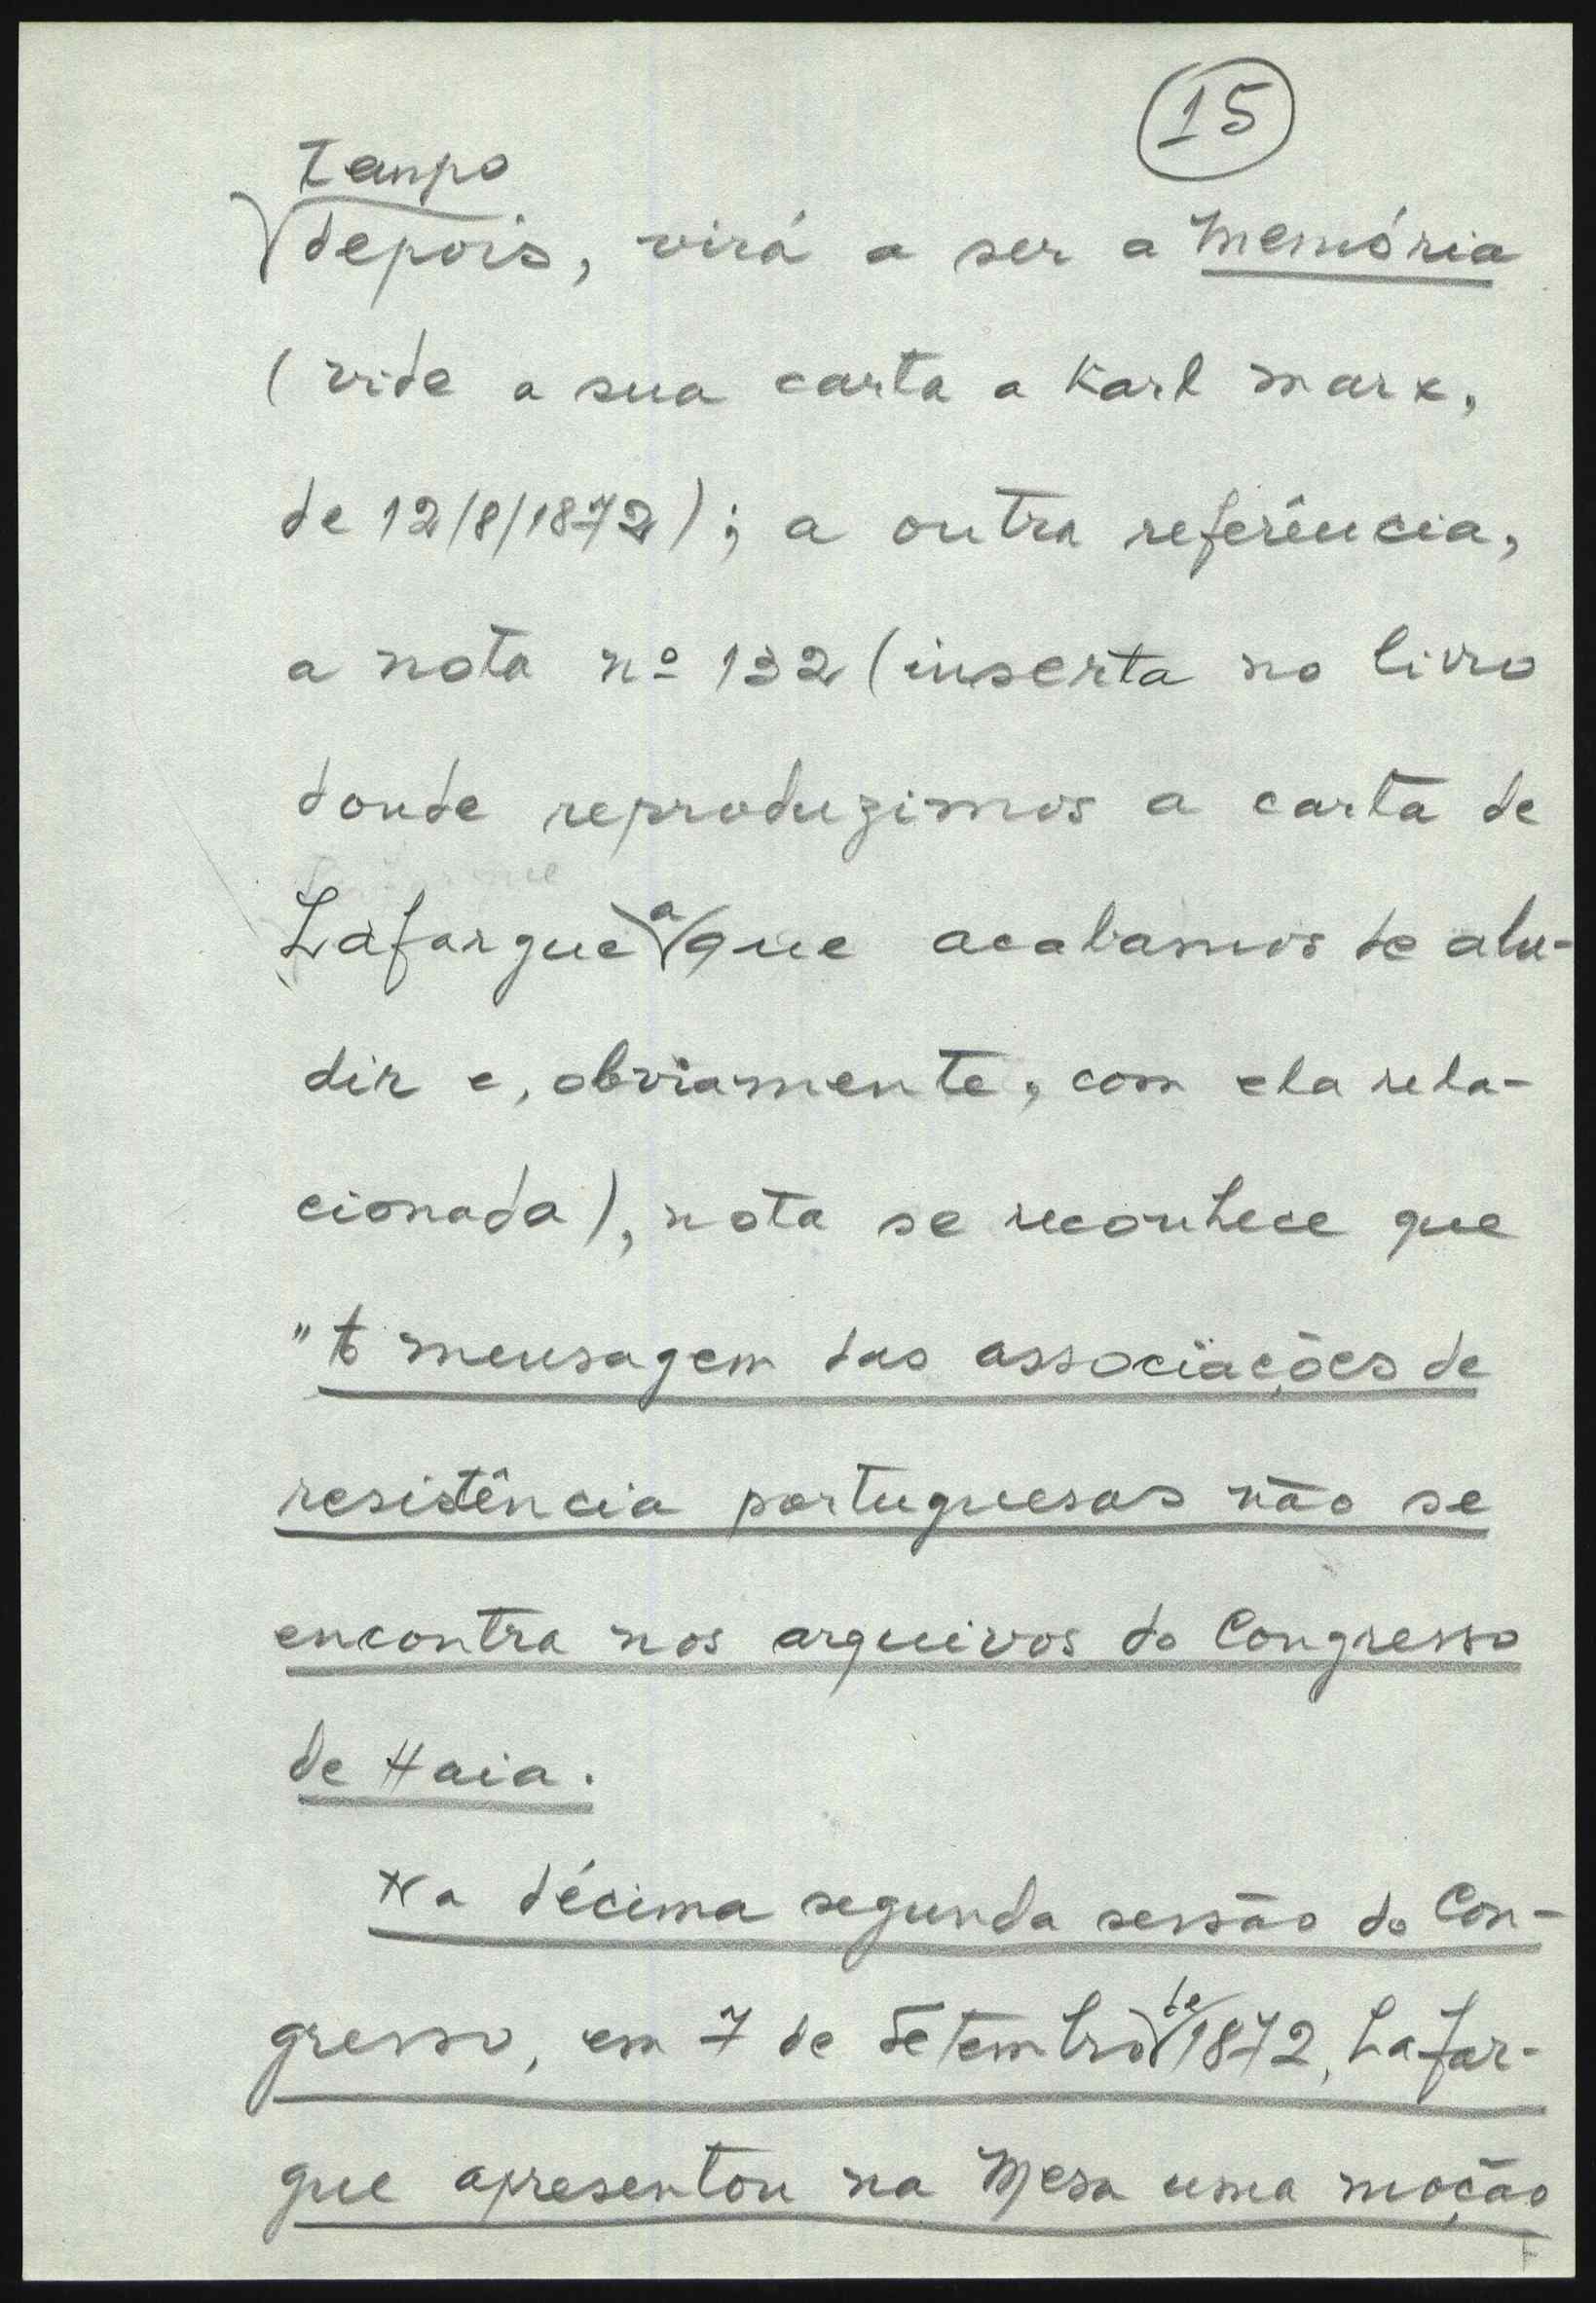 15
tempo
depois, virá a ser a Memória
(vide a sua carta a Karl Marx,
de 12/8/1872); a outra referência,
a nota nº 132 (inserta no livro
donde reproduzimos a carta de
Lafargue a que acabamos de alu-
dir e, obviamente, com ela rela-
cionada), nota se reconhece que
"A mensagem das associações de
resistência portuguesas não se
encontra nos arquivos do Congresso
de Haia.
Na décima segunda sessão do Con-
gresso, em 7 de Setembro de 1872, Lafar-
gue apresentou na Mesa uma moção